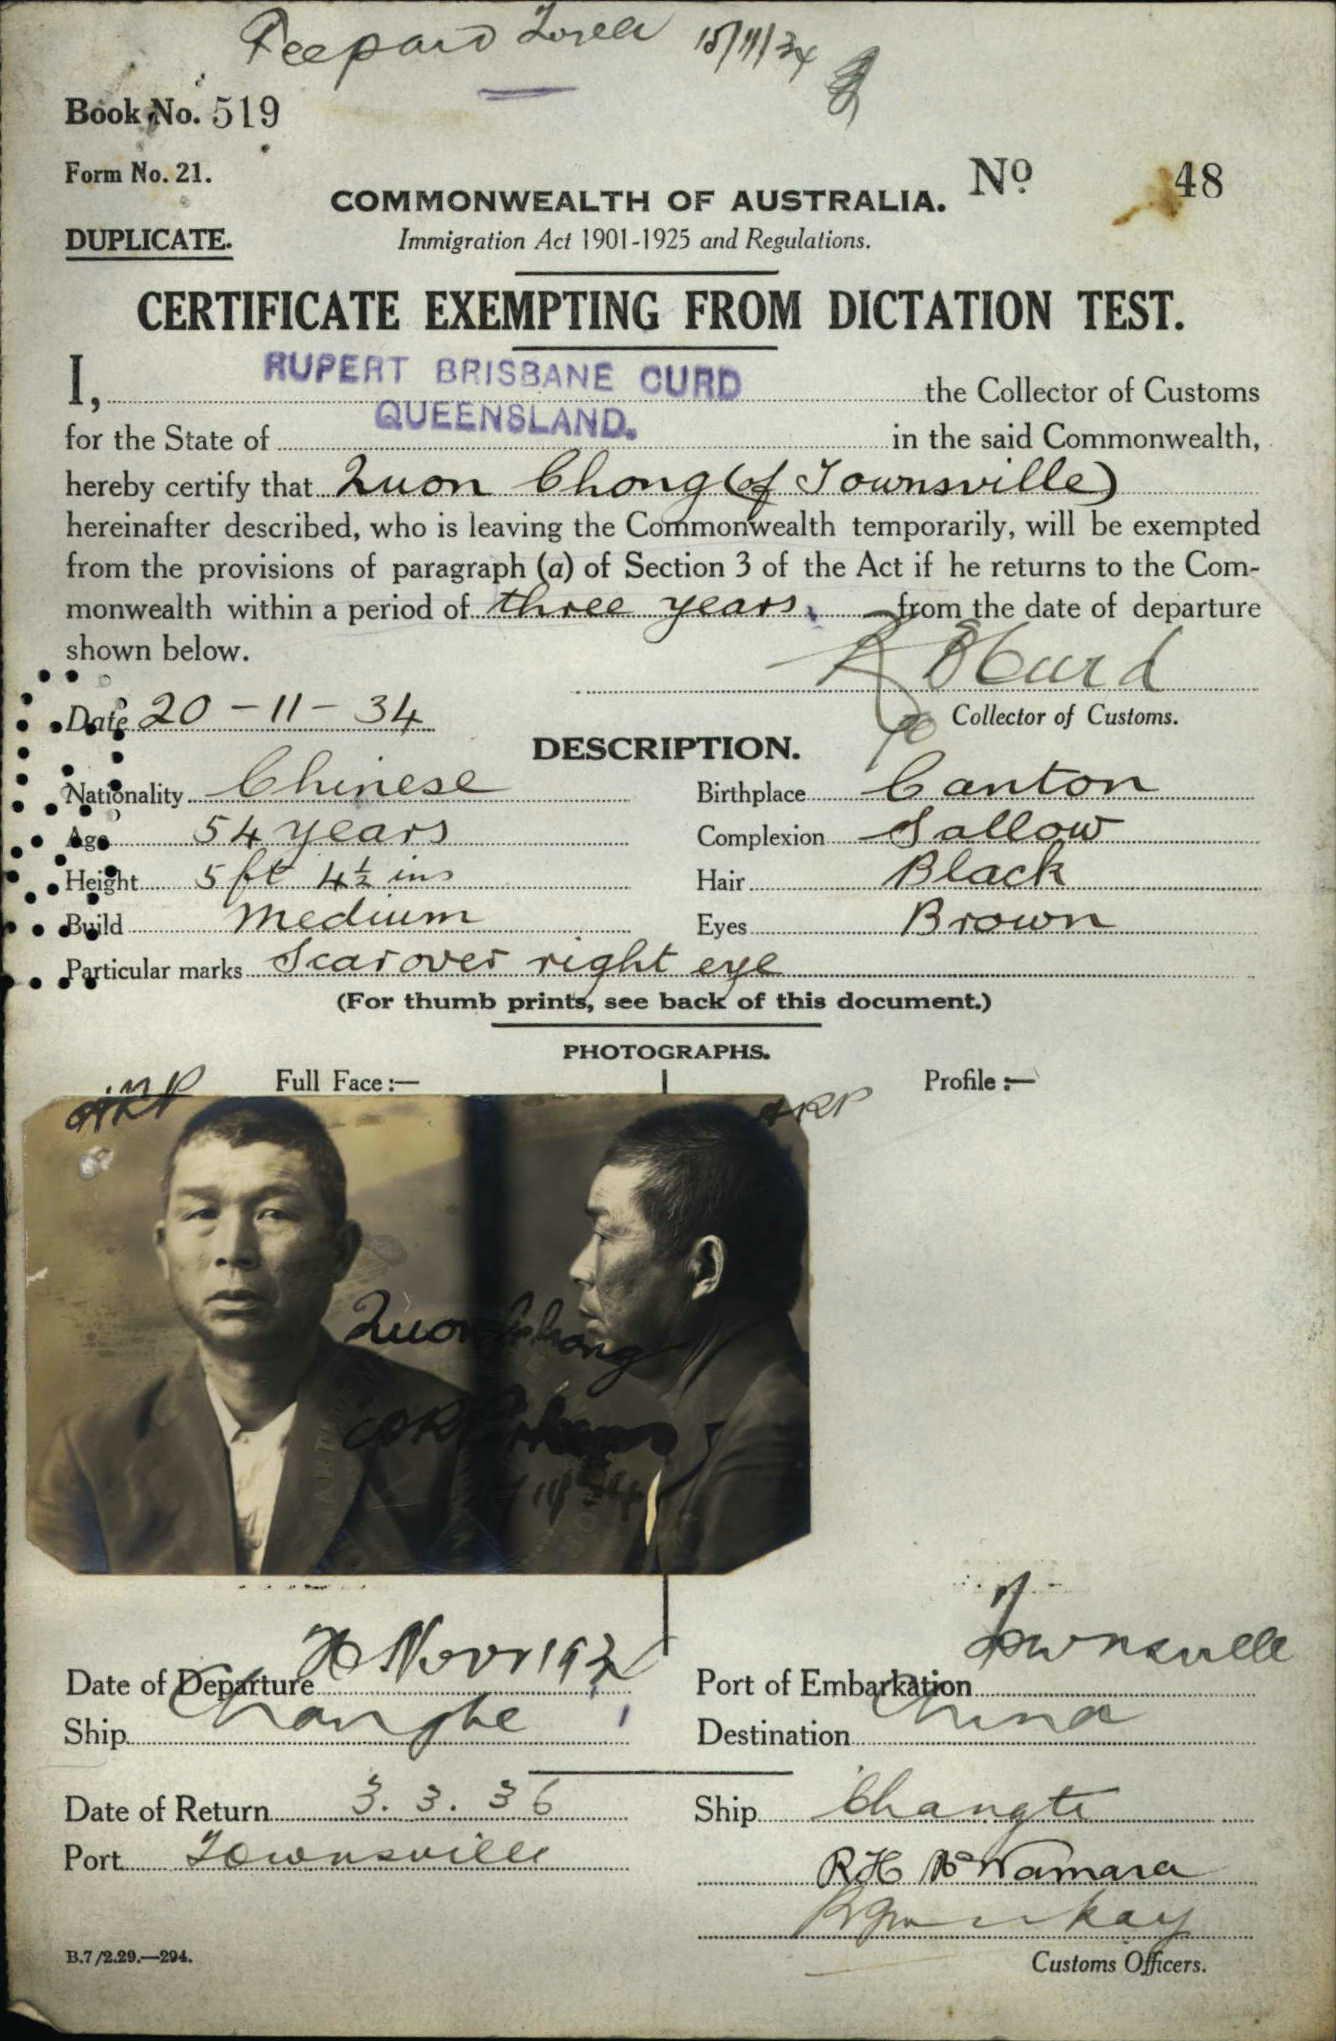 15/11/34
Book No. 519
Form No. 21.
No 48
COMMONWEALTH OF AUSTRALIA.
DUPLICATE.
Immigration Act 1901-1925 and Regulations.
CERTIFICATE EXEMPTING FROM DICTATION TEST.
I, RUPERT BRISBANE CURD the Collector of Customs
for the State of QUEENSLAND. in the said Commonwealth,
hereby certify that Quon Chong (of Townsville)
hereinafter described, who is leaving the Commonwealth temporarily, will be exempted
from the provisions of paragraph (a) of Section 3 of the Act if he returns to the Com-
monwealth within a period of three years from the date of departure
shown below.
R B Curd
Date 20-11-34
Collector of Customs.
DESCRIPTION.
Nationality Chinese Birthplace Canton
Age 54 years Complexion Sallow
Height 5 ft 4½ ins Hair Black
Build Medium Eyes Brown
Particular marks Scar over right eye
(For thumb prints, see back of this document.)
PHOTOGRAPHS.
Full Face:— Profile:—
ARP ARP
Quon Chong
Date of Departure Novr 193 Port of Embarkation Townsville
Ship Changte Destination China
Date of Return 3.3.36 Ship Changte
Port Townsville
R H McNamara
B.7/2.29.—294.
Customs Officers.